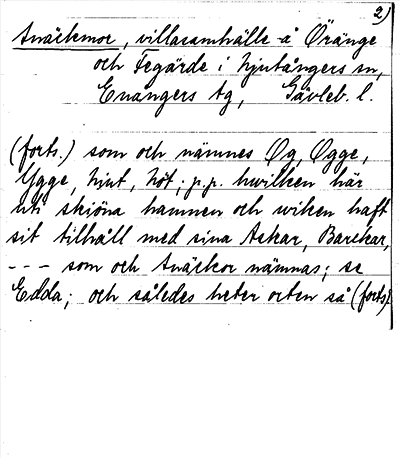 2)
Snäckmor, villasamhälle å Öränge
och Fegärde i Njutångers sn,
Enångers tg, Gävleb. l.
(forts.) som och nämnes Øg, Øgge,
Ygge, Njut, Nöt; p.p. hwilken här
uti skjöna hamnen och wiken haft
sit tillhåll med sina Askar, Barckar,
--- som och Snäckor nämnas; se
Edda; och således heter orten så (forts)